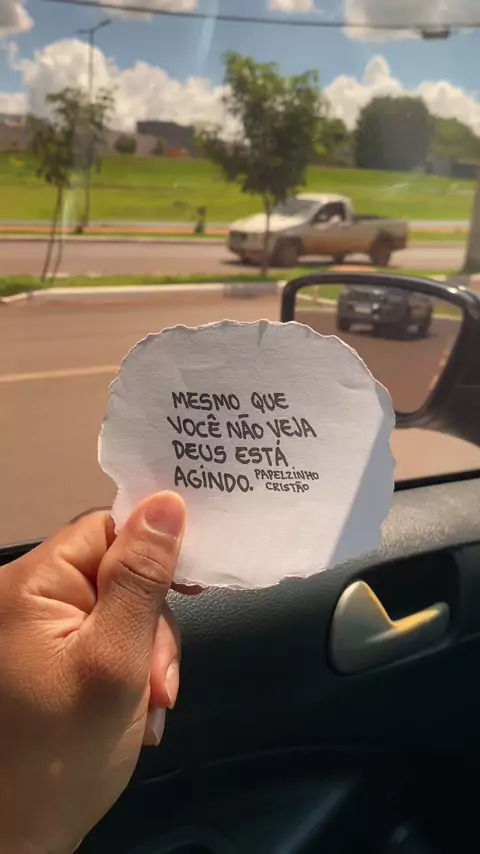 MESMO QUE
VOCÊ NÃO VEJA
DEUS ESTÁ
AGINDO. PAPELZINHO
CRISTÃO